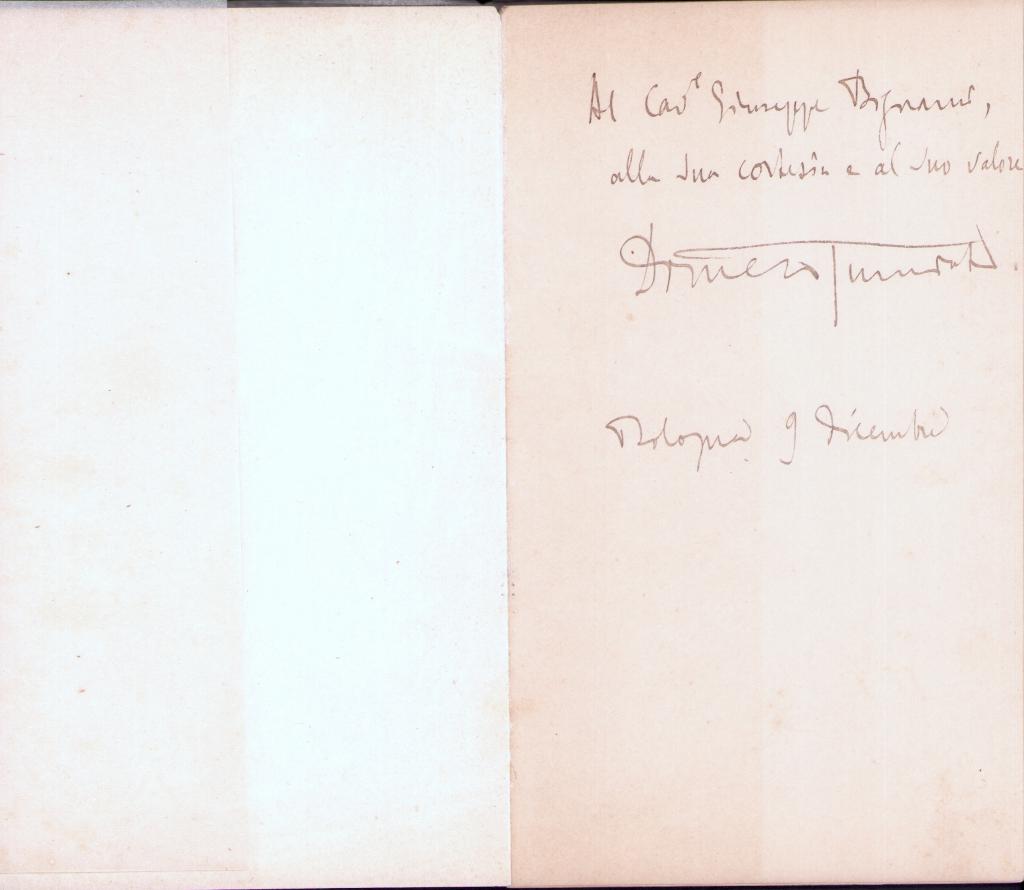 Al Cav^e Giuseppe Bignami,
alla sua cortesia e al suo valore
Domenico Tumiati.
Bologna 9 dicembre